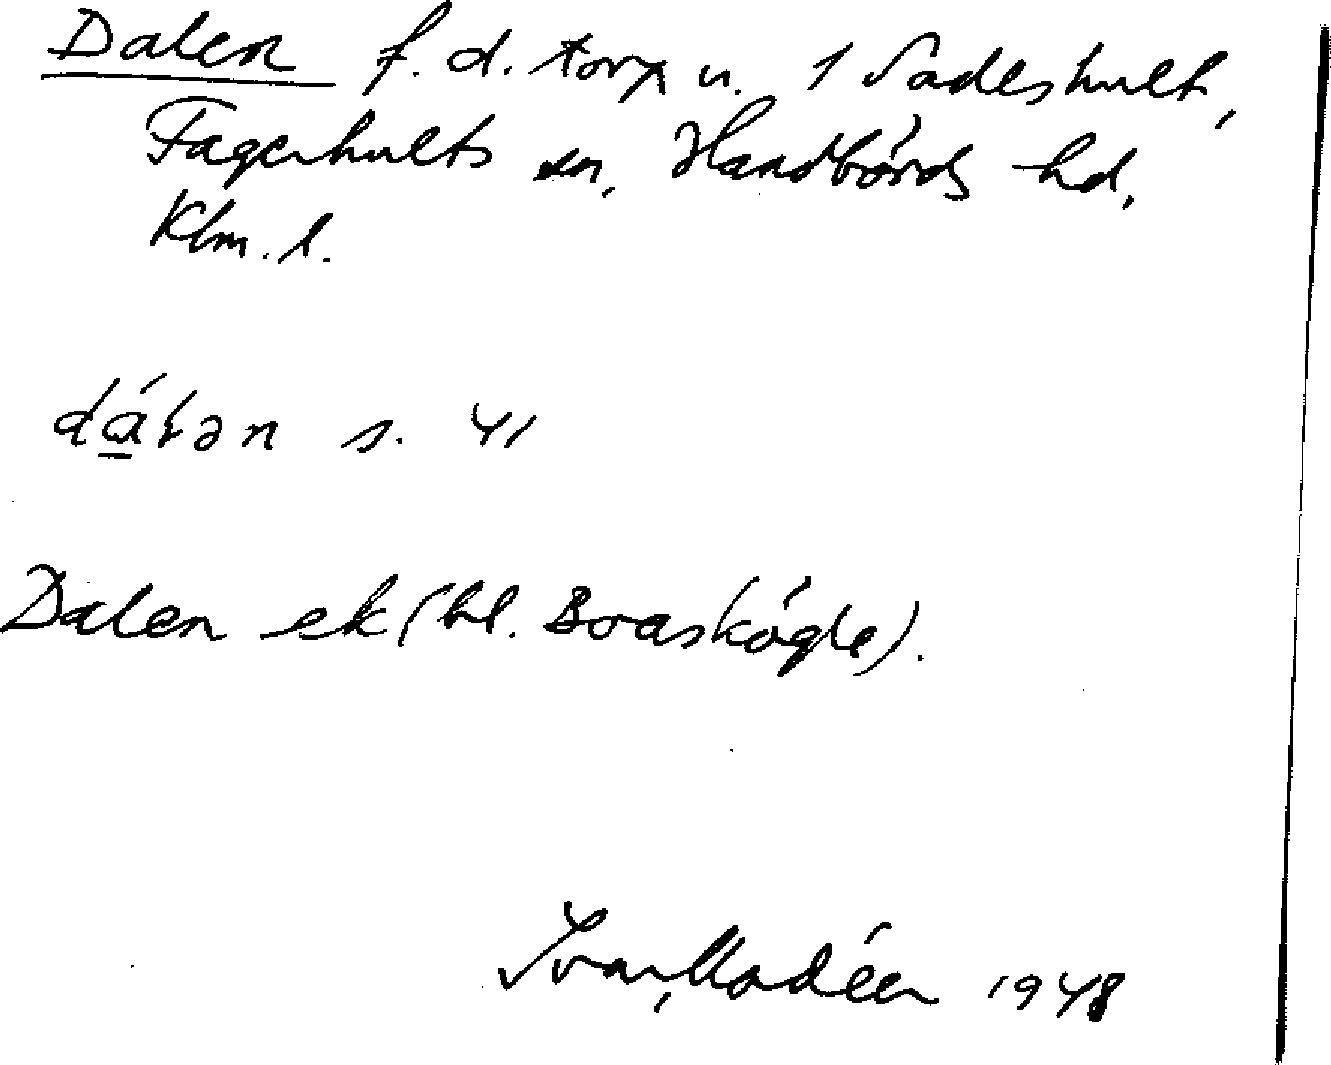 Dalen f. d. torp u. 1 Sadeshult,
Fagerhults sn, Handbörds hd,
Klm. l.
dálən s. 41
Dalen ek (bl. Boaskögle).
Ivar Modéer 1948